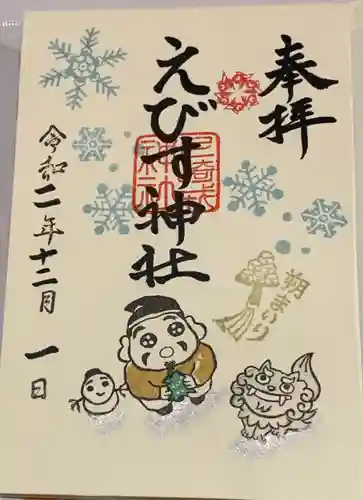 奉拝
えびす神社
三崎
神社
朔まいり
令和二年十二月一日